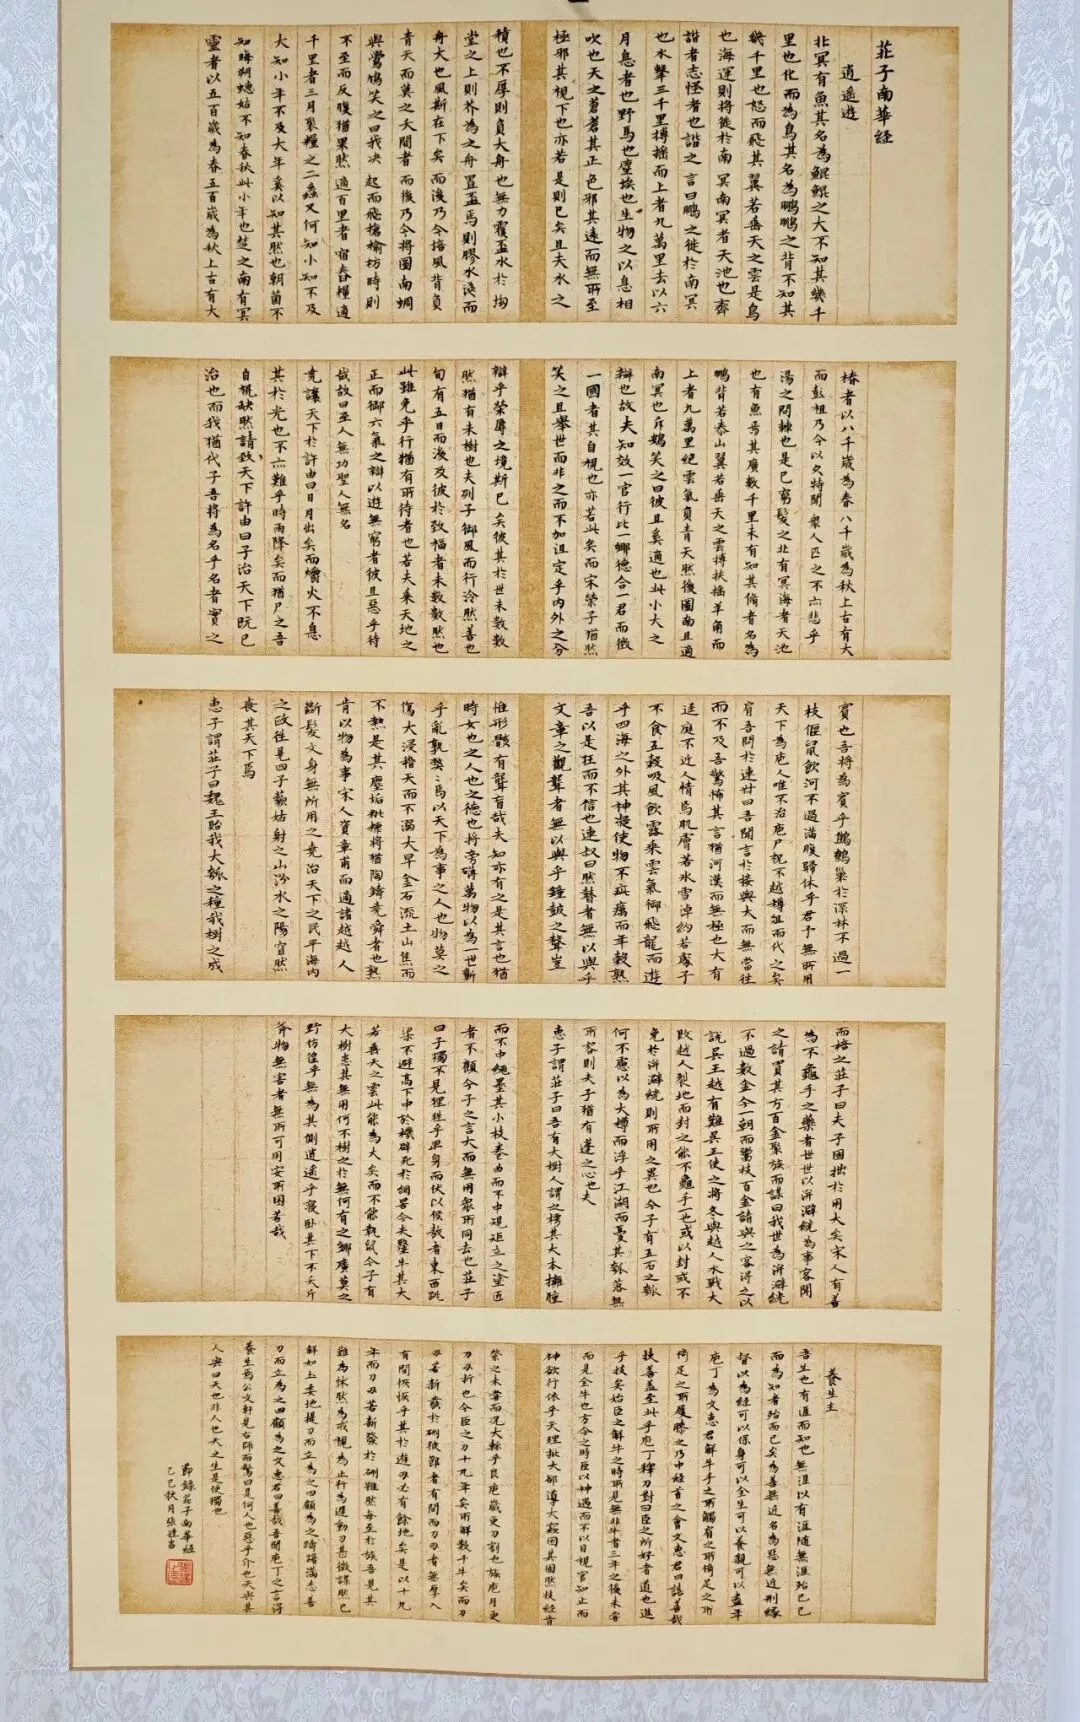 莊子南華经
逍遥遊
北冥有魚其名為鯤鯤之大不知其幾千
里也化而為鳥其名為鵬鵬之背不知其
幾千里也怒而飛其翼若垂天之雲是鳥
也海運則将徙於南冥南冥者天池也齊
諧者志怪者也諧之言曰鵬之徙於南冥
也水擊三千里摶摇而上者九萬里去以六
月息者也野馬也塵埃也生物之以息相
吹也天之蒼蒼其正色邪其遠而無所至
極邪其視下也亦若是則已矣且夫水之
積也不厚則負大舟也無力覆盃水於坳
堂之上則芥為之舟置盃焉則膠水淺而
舟大也風斯在下矣而後乃今培風背負
青天而莫之夭閼者而後乃今将圖南蜩
與鷽鳩笑之曰我决起而飛搶榆枋時則
不至而反腹猶果然適百里者宿舂糧適
千里者三月聚糧之二蟲又何知小知不及
大知小年不及大年奚以知其然也朝菌不
知晦朔蟪蛄不知春秋此小年也楚之南有冥
靈者以五百歲為春五百歲為秋上古有大
椿者以八千歲為春八千歲為秋上古有大
而彭祖乃今以久特聞衆人匹之不亦悲乎
湯之問棘也是已窮髮之北有冥海者天池
也有魚焉其廣數千里未有知其脩者名為
鵬背若泰山翼若垂天之雲摶扶摇羊角而
上者九萬里绝雲氣負青天然後圖南且適
南冥也斥鴳笑之曰彼且奚適也此小大之
辯也故夫知效一官行比一鄉德合一君而徵
一國者其自視也亦若此矣而宋榮子猶然
笑之且舉世而非之而不加沮定乎内外之分
辯乎榮辱之境斯已矣彼其於世未數數
然猶有未樹也夫列子御風而行泠然善也
旬有五日而後反彼於致福者未數數然也
此雖免乎行猶有所待者也若夫乘天地之
正而御六氣之辯以遊無窮者彼且惡乎待
哉故曰至人無功聖人無名
尭讓天下於許由曰日月出矣而爝火不息
其於光也不亦難乎時雨降矣而猶尸之吾
自視缺然請致天下許由曰子治天下既已
治也而我猶代子吾将為名乎名者實之
賓也吾将為賓乎鷦鷯巢於深林不過一
枝偃鼠飲河不過滿腹歸休乎君予無所用
天下為庖人唯不治庖尸祝不越樽俎而代之矣
肩吾問於連叔曰吾聞言於接輿大而無當往
而不及吾驚怖其言猶河漢而無極也大有
迳庭不近人情焉肌膚若氷雪淖约若處子
不食五穀吸風飲露乘雲氣御飛龍而遊
乎四海之外其神凝使物不疵癘而年穀熟
吾以是狂而不信也連叔曰然瞽者無以與乎
文章之觀聾者無以與乎鐘鼓之聲豈
惟形骸有聾盲哉夫知亦有之是其言也猶
時女也之人也之德也将旁礴萬物以為一世蘄
乎亂孰獘獘焉以天下為事之人也物莫之
傷大浸稽天而不溺大旱金石流土山焦而
不熱是其塵垢粃糠将猶陶鑄尭舜者也孰
肯以物為事宋人資章甫而適諸越越人
斷髮文身無所用之尭治天下之民平海内
之政往見四子藐姑射之山汾水之陽窅然
喪其天下焉
惠子謂莊子曰魏王貽我大瓠之種我樹之成
而掊之莊子曰夫子固拙於用大矣宋人有善
為不龜手之藥者世世以洴澼絖為事客聞
之請買其方百金聚族而謀曰我世為洴澼絖
不過數金今一朝而鬻技百金請與之客得之以
說吳王越有難吳王使之将冬與越人水戰大
敗越人裂地而封之能不龜手一也或以封或不
免於洴澼絖則所用之異也今子有五石之瓠
何不慮以為大樽而浮乎江湖而憂其瓠落無
所容則夫子猶有蓬之心也夫
惠子謂莊子曰吾有大樹人謂之樗其大本擁腫
而不中繩墨其小枝卷曲而不中規矩立之塗匠
者不顧今子之言大而無用衆所同去也莊子
曰子獨不見狸狌乎卑身而伏以候敖者東西跳
梁不避高下中於機辟死於網罟今夫斄牛其大
若垂天之雲此能為大矣而不能執鼠今子有
大樹患其無用何不樹之於無何有之鄉廣莫之
野彷徨乎無為其側逍遥乎寢卧其下不夭斤
斧物無害者無所可用安所困苦哉
養生主
吾生也有涯而知也無涯以有涯随無涯殆已已
而為知者殆而已矣為善無近名為惡無近刑緣
督以為經可以保身可以全生可以養親可以盡年
庖丁為文惠君解牛手之所觸肩之所倚足之所
倚足之所履膝之乃中经首之會文惠君曰譆善哉
技善盖至此乎庖丁釋刀對曰臣之所好者道也進
乎技矣始臣之解牛之時所見無非牛者三年之後未嘗
而見全牛也方今之時臣以神遇而不以目視官知止而
神欲行依乎天理批大郤導大窾因其固然技经肯
綮之未嘗而况大軱乎良庖歲更刀割也族庖月更
刀刀折也今臣之刀十九年矣所解數千牛矣而刀
刃若新發於硎彼節者有間而刀刃者無厚入
有間恢恢乎其於遊刃必有餘地矣是以十九
年而刀刃若新發於硎雖然每至於族吾見其
難為怵然為戒視為止行為遲動刀甚微謋然已
解如土委地提刀而立為之四顧為之躊躇滿志善
刀而立為之四顧為之文惠君曰善哉吾聞庖丁之言得
養生焉公文軒見右師而驚曰是何人也惡乎介也天與其
人與曰天也非人也天之生是使獨也
節錄莊子南華经
己巳秋月張